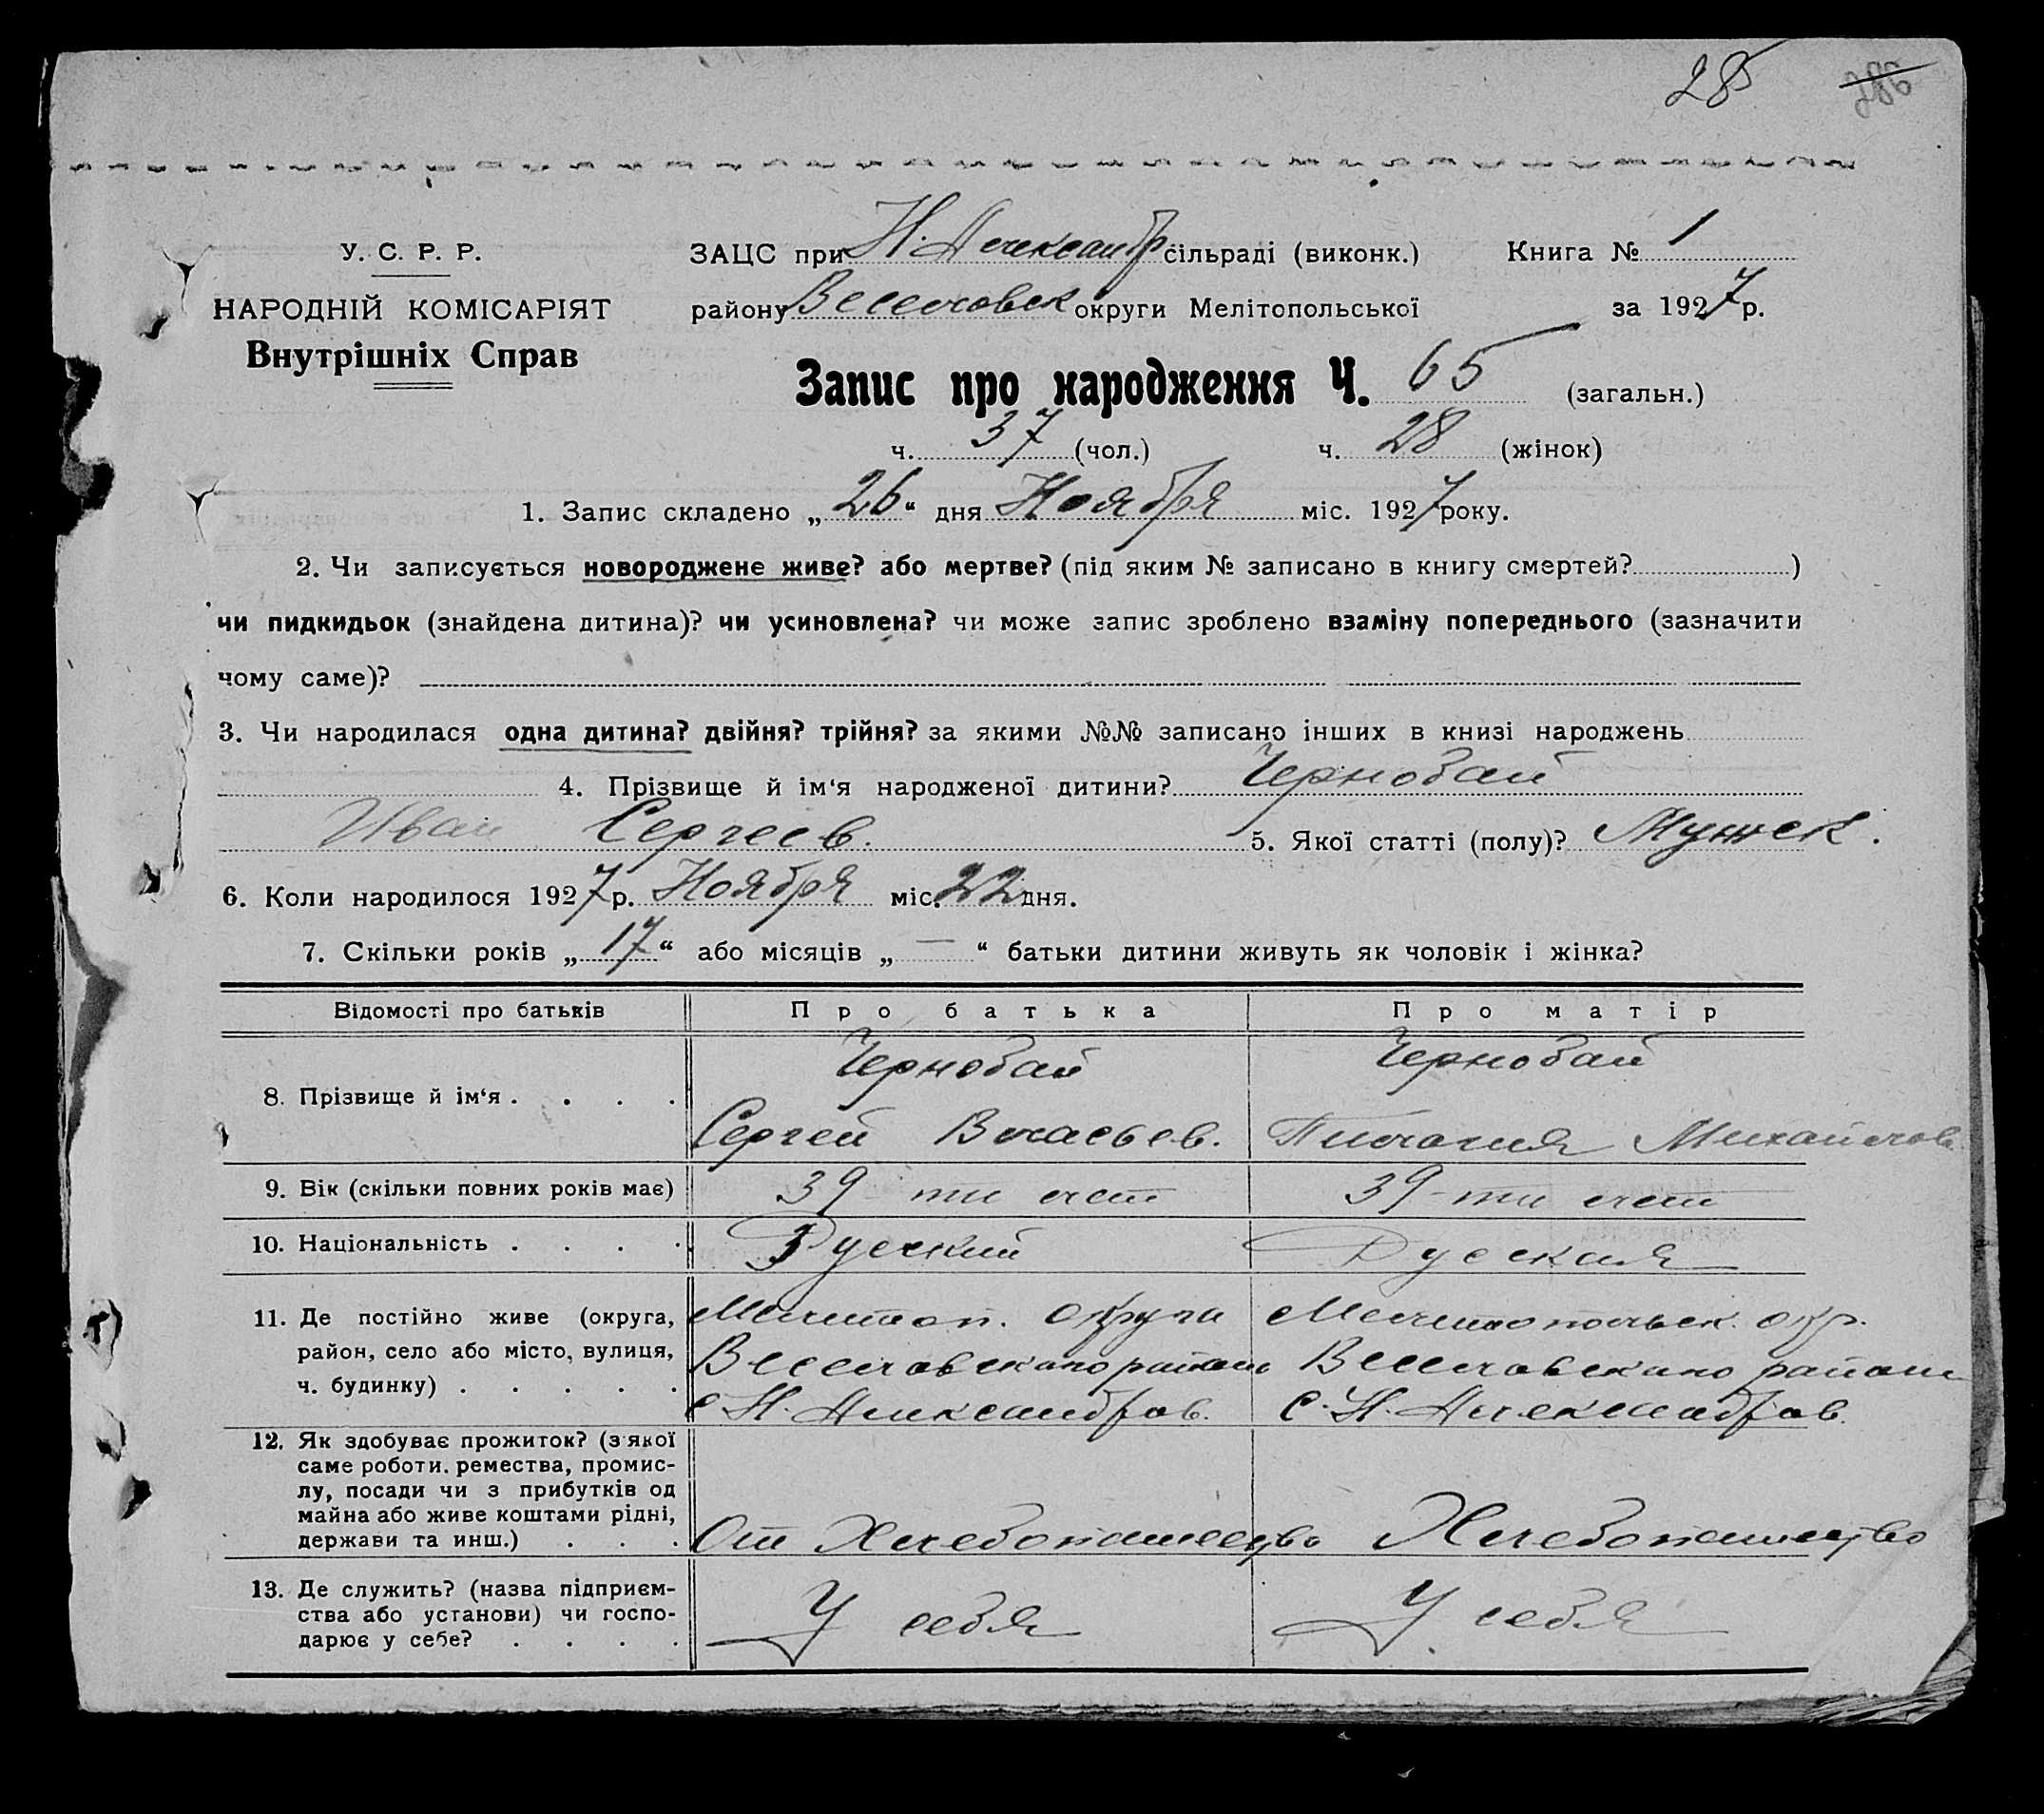 28
У. С. Р. Р.
НАРОДНІЙ КОМІСАРІЯТ
Внутрішніх Справ
ЗАЦС при Н. Александр сільраді (виконк.) Книга № 1
району Веселовск округи Мелітопольської за 1927 р.
Запис про народження Ч. 65 (загальн.)
ч. 37 (чол.) ч. 28 (жінок)
1. Запис складено „26“ дня Ноября міс. 1927 року.
2. Чи записується новороджене живе? або мертве? (під яким № записано в книгу смертей? )
чи пидкидьок (знайдена дитина)? чи усиновлена? чи може запис зроблено взаміну попереднього (зазначити
чому саме)?
3. Чи народилася одна дитина? двійня? трійня? за якими №№ записано інших в книзі народжень
4. Прізвище й ім‘я народженої дитини? Чернобай
Иван Сергеев. 5. Якої статті (полу)? Мужск.
6. Коли народилося 1927 р. Ноября міс. 22 дня.
7. Скільки років „17“ або місяців „—“ батьки дитини живуть як чоловік і жінка?
Відомості про батьків Про батька Про матір
8. Прізвище й ім‘я . . . . Чернобай Чернобай
Сергей Власьев. Пилагия Михайлов
9. Вік (скільки повних років має) 39 ти лет 39-ти лет
10. Національність . . . . Русский Русская
11. Де постійно живе (округа, Мелитоп. округи Мелитопольск. окр.
район, село або місто, вулиця, Веселовского района Веселовского района
ч. будинку) . . . . . с Н. Александров. с. Н. Александров.
12. Як здобуває прожиток? (з якої
саме роботи. ремества, промис-
лу, посади чи з прибутків од
майна або живе коштами рідні,
держави та инш.) . . . От Хлебопашества Хлебопашество
13. Де служить? (назва підприєм-
ства або установи) чи госпо-
дарює у себе? . . . . У себя У себя